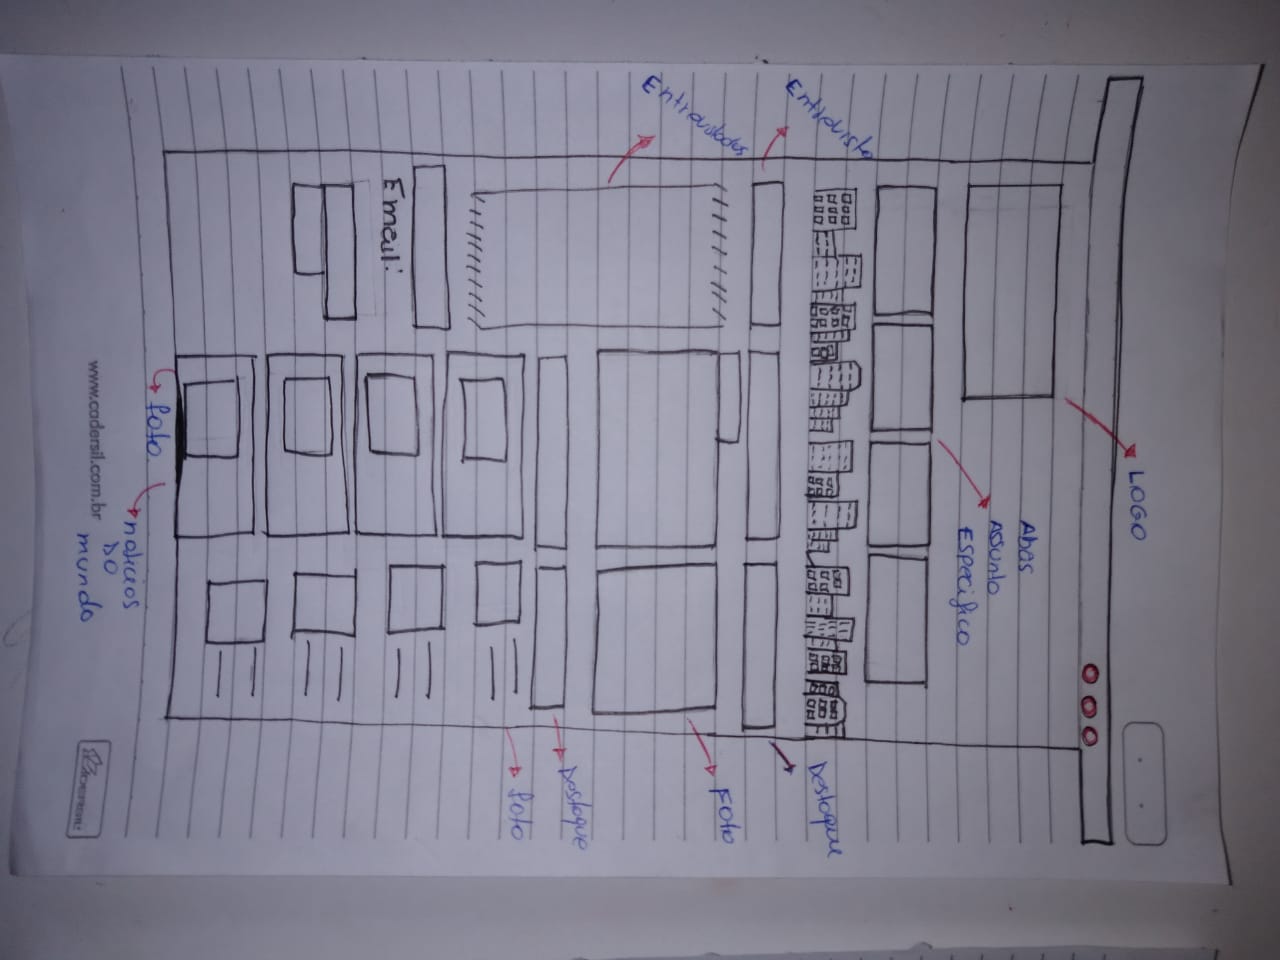 LOGO
Abas
Assunto
Especifico
Entrevista
Destaque
Entrevistados
Foto
Destaque
foto
Email:
foto
noticias
DO
mundo
www.cadersil.com.br
CADERSIL